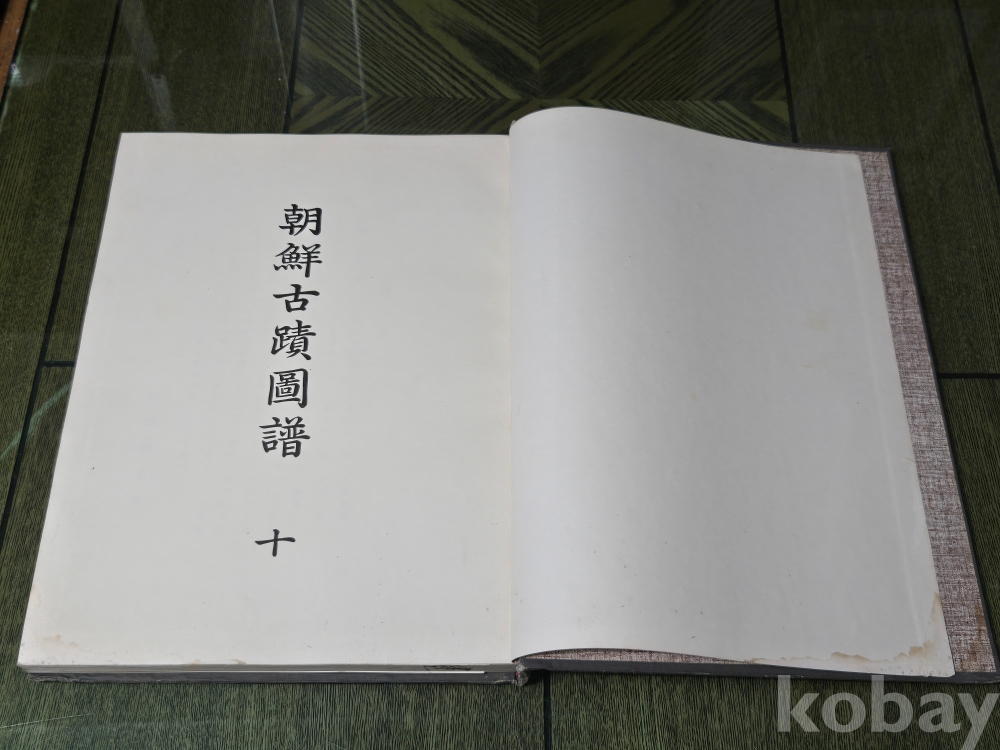 朝鮮古蹟圖譜
十
kobay